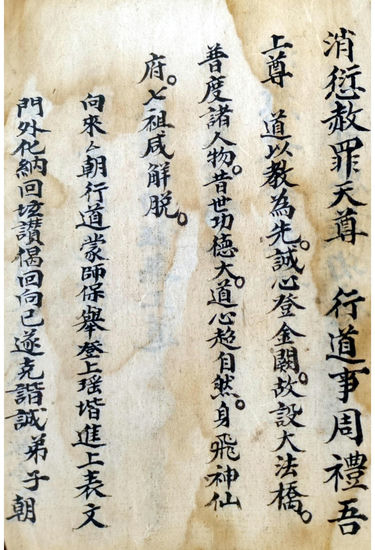 消愆赦罪天尊　行道事周禮吾
上尊　道以教為先。誠心登金闕。故設大法橋。
普度諸人物。昔世功德大。道心超自然。身飛神仙
府。七祖咸解脱。
向來众朝行道蒙師保舉登上瑶堦進上表文
門外化納回壇讃偈回向已遂克諧誠弟子朝